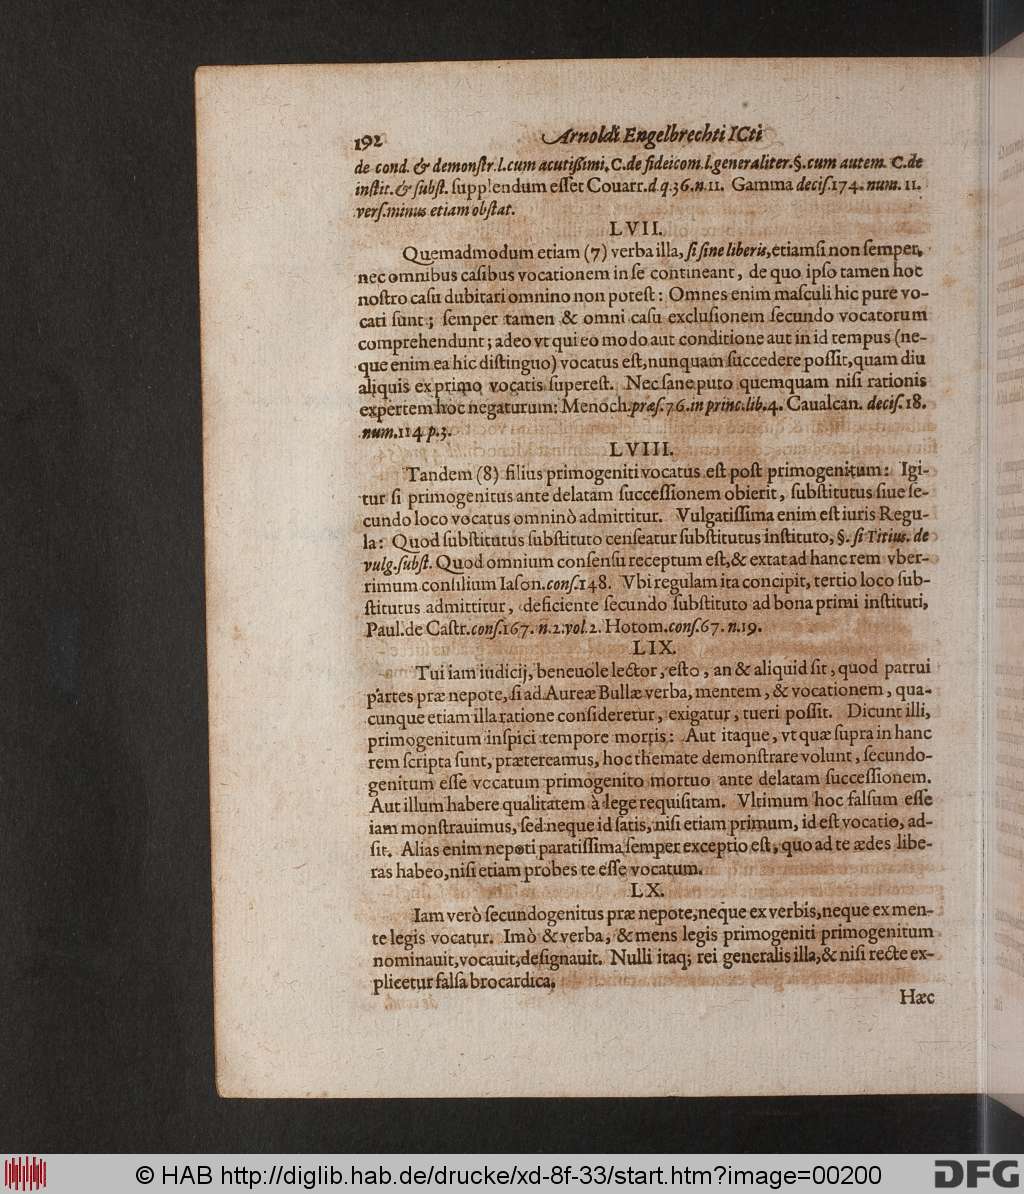 192 Arnoldi Engelbrechti ICti
de cond. & demonſtr. l. cum acutiſſimi, C. de fideicom. l. generaliter. §. cum autem. C. de
inſtit. & ſubſt. ſupplendum eſſet Couarr. d. q. 36. n. 11. Gamma deciſ. 174. num. 11.
verſ. minus etiam obſtat.
LVII.
Quemadmodum etiam (7) verba illa, ſi ſine liberis, etiamſi non ſemper,
nec omnibus caſibus vocationem in ſe contineant, de quo ipſo tamen hoc
noſtro caſu dubitari omnino non poteſt: Omnes enim maſculi hic pure vo-
cati ſunt; ſemper tamen & omni caſu excluſionem ſecundo vocatorum
comprehendunt; adeo vt qui eo modo aut conditione aut in id tempus (ne-
que enim ea hic diſtinguo) vocatus eſt, nunquam ſuccedere poſſit, quam diu
aliquis ex primo vocatis ſupereſt. Nec ſane puto quemquam niſi rationis
expertem hoc negaturum: Menoch. præſ. 76. in princ. lib. 4. Caualcan. deciſ. 18.
num. 114 p. 3.
LVIII.
Tandem (8) filius primogeniti vocatus eſt poſt primogenitum: Igi-
tur ſi primogenitus ante delatam ſucceſſionem obierit, ſubſtitutus ſiue ſe-
cundo loco vocatus omninò admittitur. Vulgatiſſima enim eſt iuris Regu-
la: Quod ſubſtitutus ſubſtituto cenſeatur ſubſtitutus inſtituto, §. ſi Titius. de
vulg. ſubſt. Quod omnium conſenſu receptum eſt, & extat ad hanc rem vber-
rimum conſilium Iaſon. conſ. 148. Vbi regulam ita concipit, tertio loco ſub-
ſtitutus admittitur, deficiente ſecundo ſubſtituto ad bona primi inſtituti,
Paul. de Caſtr. conſ. 167. n. 2. vol. 2. Hotom. conſ. 67. n. 19.
LIX.
Tui iam iudicij, beneuole lector, eſto, an & aliquid ſit, quod patrui
partes præ nepote, ſi ad Aureæ Bullæ verba, mentem, & vocationem, qua-
cunque etiam illa ratione conſideretur, exigatur, tueri poſſit. Dicunt illi,
primogenitum inſpici tempore mortis: Aut itaque, vt quæ ſupra in hanc
rem ſcripta ſunt, prætereamus, hoc themate demonſtrare volunt, ſecundo-
genitum eſſe vocatum primogenito mortuo ante delatam ſucceſſionem.
Aut illum habere qualitatem à lege requiſitam. Vltimum hoc falſum eſſe
iam monſtrauimus, ſed neque id ſatis, niſi etiam primum, id eſt vocatio, ad-
ſit. Alias enim nepoti paratiſſima ſemper exceptio eſt, quo ad te ædes libe-
ras habeo, niſi etiam probes te eſſe vocatum.
LX.
Iam verò ſecundogenitus præ nepote, neque ex verbis, neque ex men-
te legis vocatur. Imò & verba, & mens legis primogeniti primogenitum
nominauit, vocauit, deſignauit. Nulli itaq; rei generalis illa, & niſi recte ex-
plicetur falſa brocardica.
Hæc
© HAB http://diglib.hab.de/drucke/xd-8f-33/start.htm?image=00200
DFG